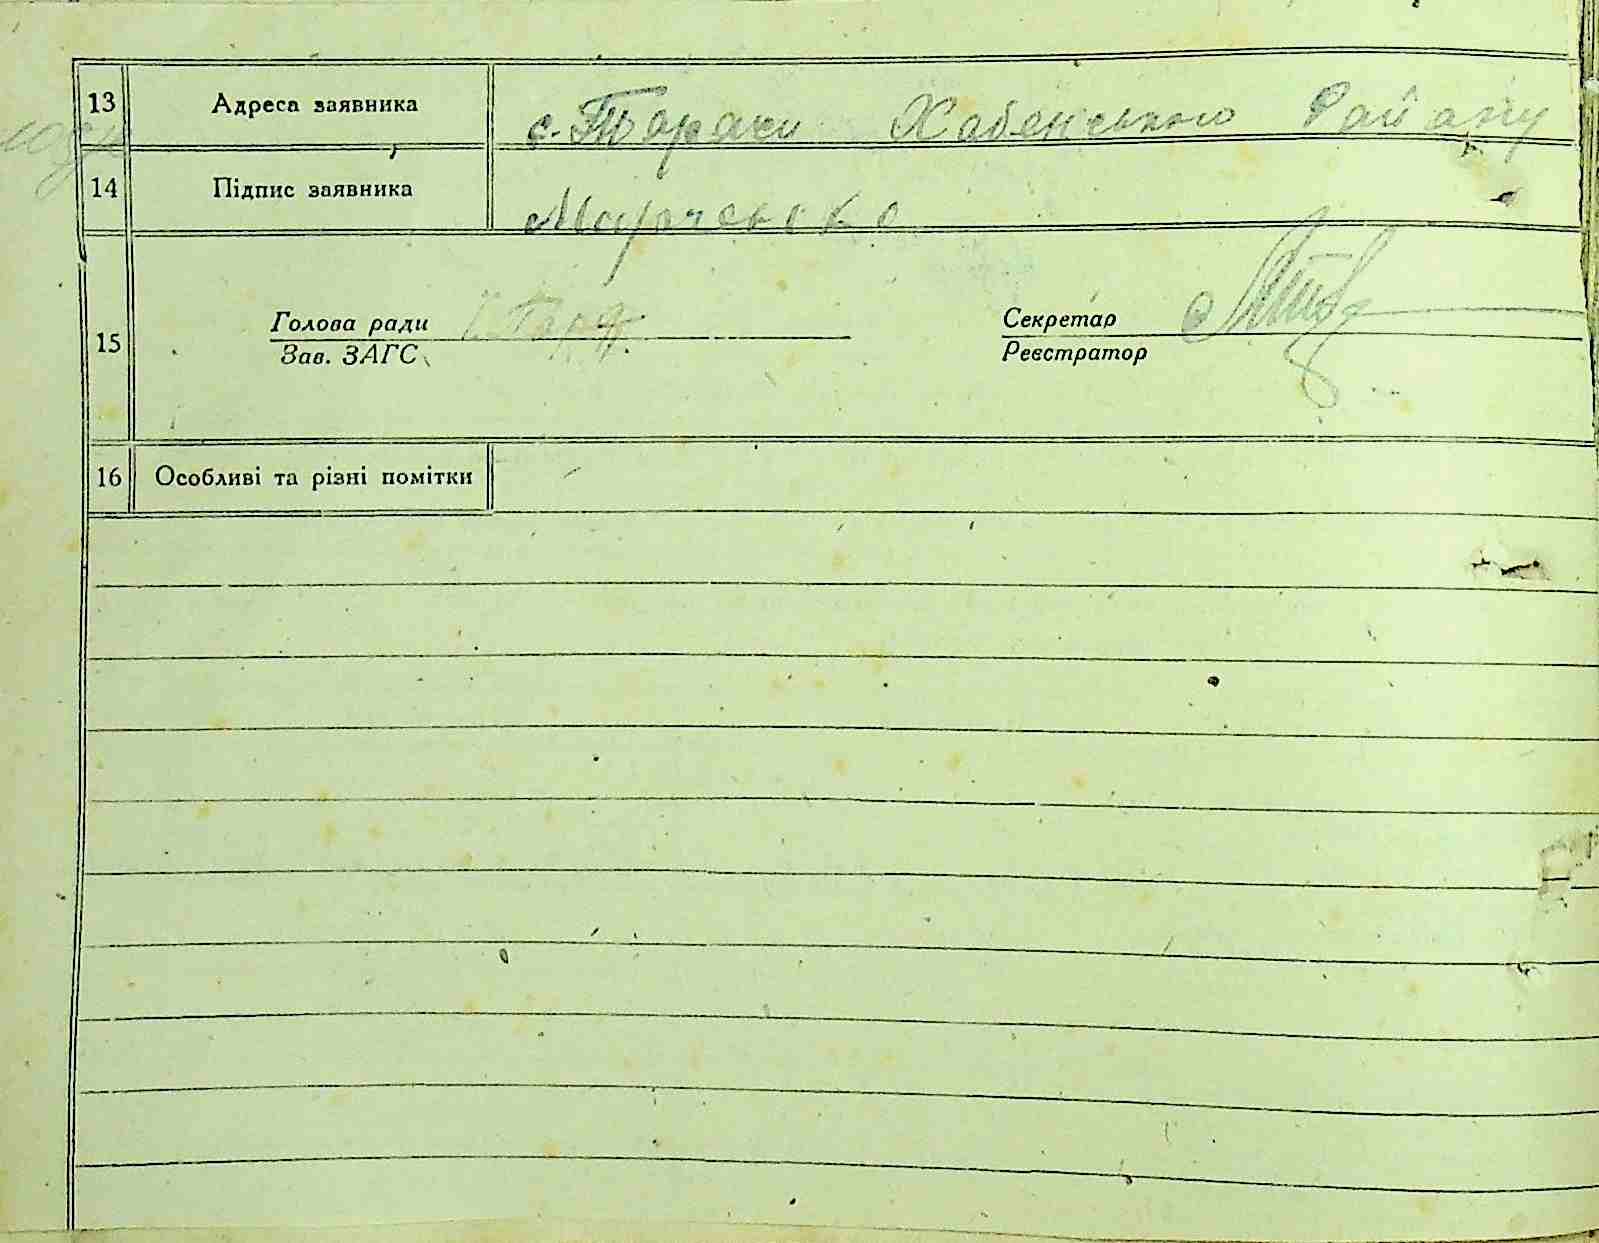 13 Адреса заявника с. Тараси Хабенського Району
14 Підпис заявника Марченко
15 Голова ради Секретар
Зав. ЗАГС Реєстратор
16 Особливі та різні помітки